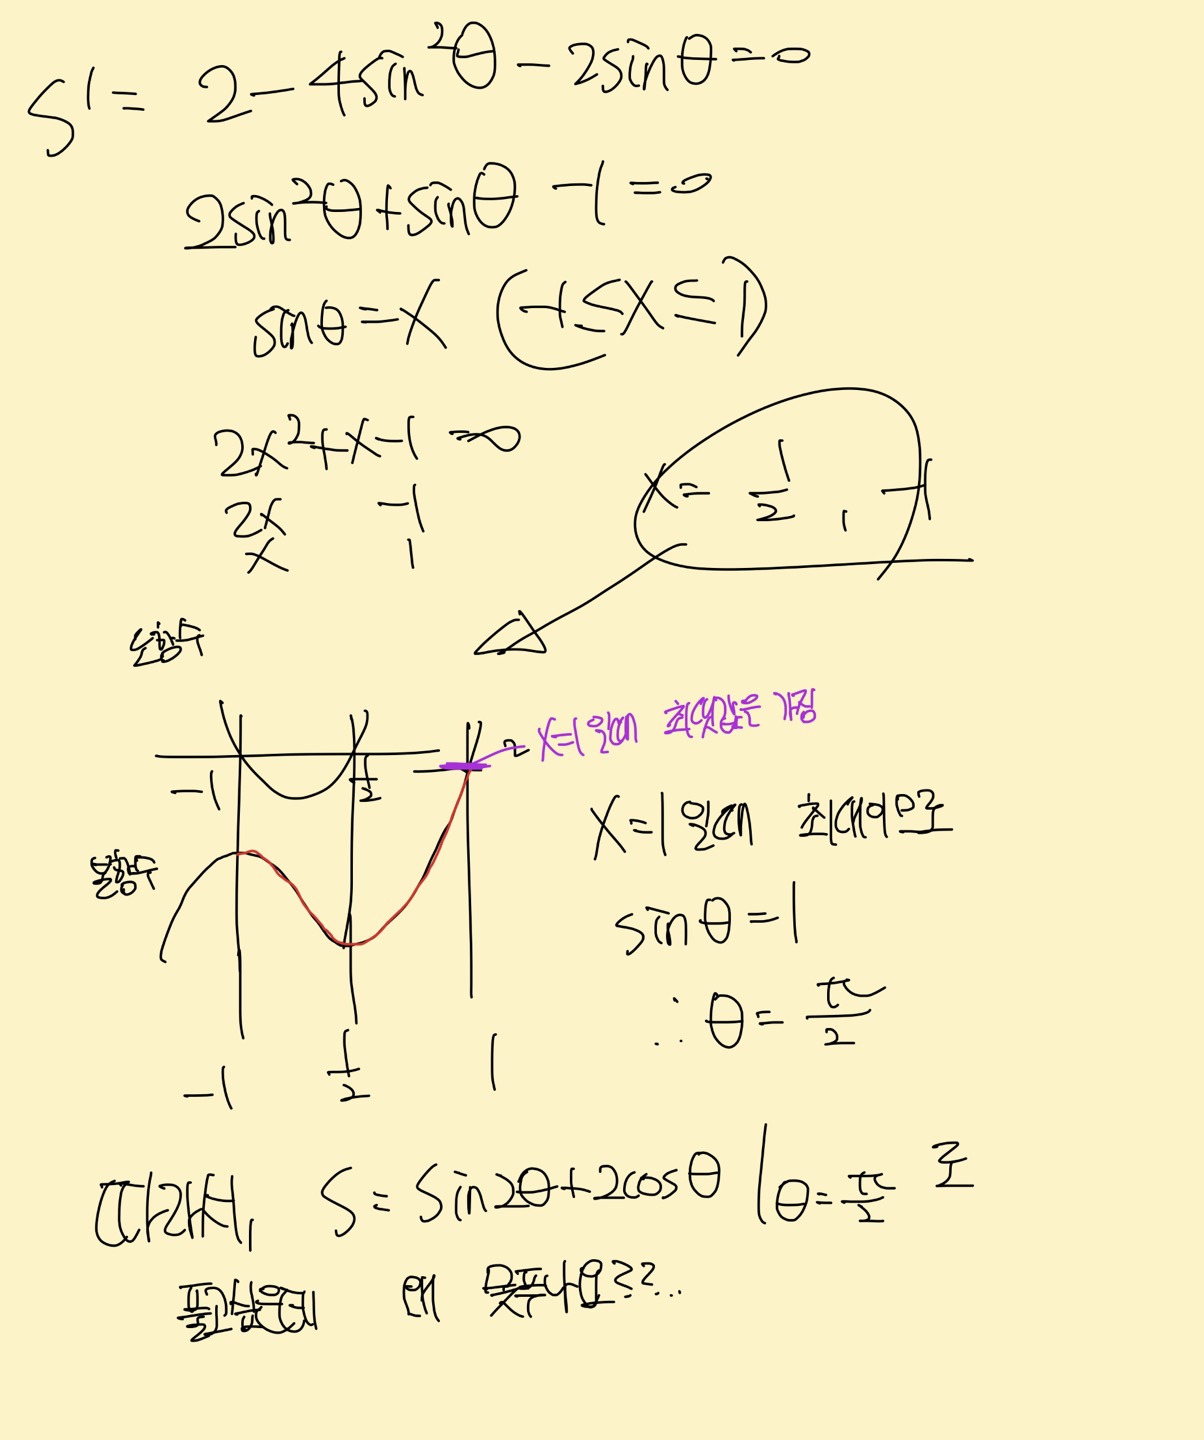 S' = 2 - 4sin²θ - 2sinθ = 0
2sin²θ + sinθ - 1 = 0
sinθ = x (-1 ≤ x ≤ 1)
2x² + x - 1 = 0
2x -1
x 1
x = 1/2, -1
도함수
-1 1/2
x=1일때 최댓값을 가짐
원함수
x=1일때 최대이므로
sinθ = 1
∴ θ = π/2
-1 1/2 1
따라서, S = sin2θ + 2cosθ |θ=π/2 로
풀고싶은데 왜 못푸나요??...